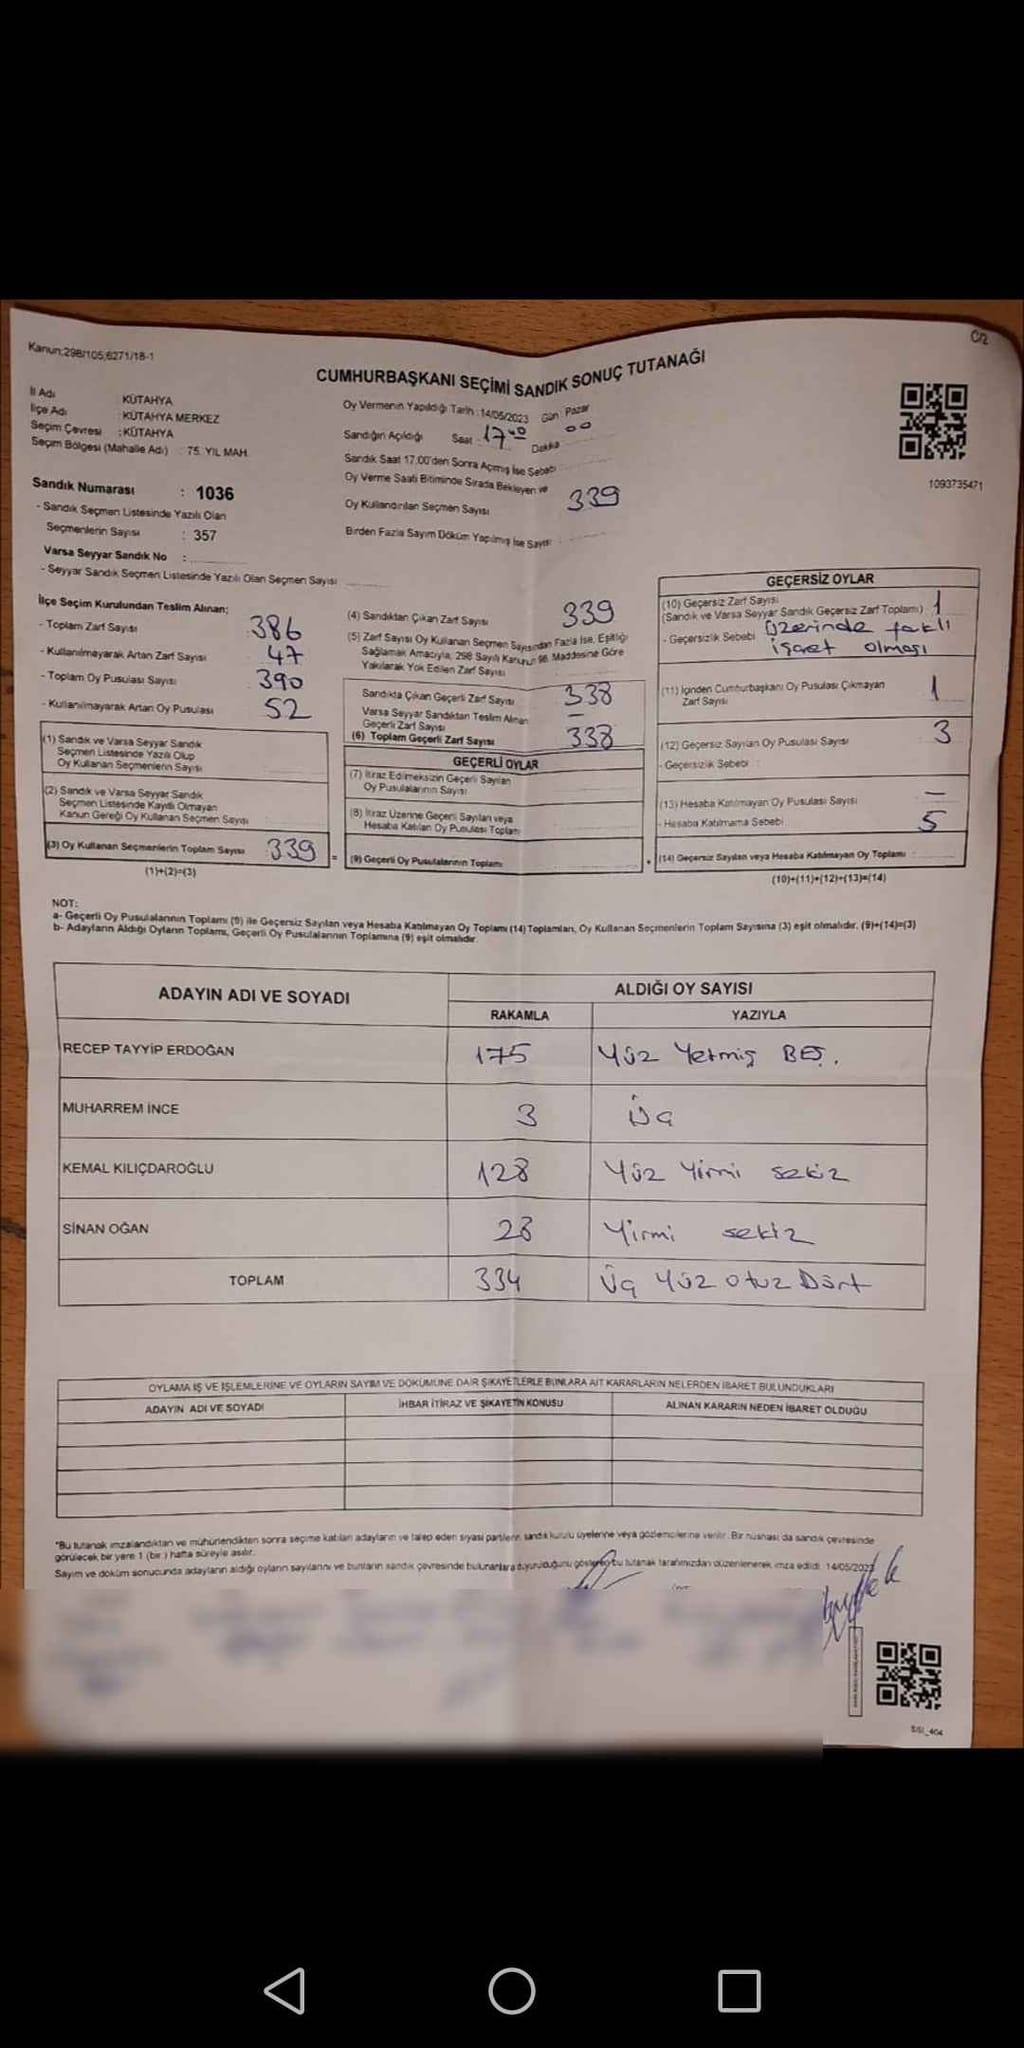 C/2
Kanun:298/105;6271/18-1
CUMHURBAŞKANI SEÇİMİ SANDIK SONUÇ TUTANAĞI
İl Adı KÜTAHYA
İlçe Adı : KÜTAHYA MERKEZ
Seçim Çevresi : KÜTAHYA
Seçim Bölgesi (Mahalle Adı) : 75. YIL MAH.
Oy Vermenin Yapıldığı Tarih : 14/05/2023 Gün : Pazar
Sandığın Açıldığı Saat : 17:00 Dakika 00
Sandık Saat 17.00'den Sonra Açmış İse Sebebi
Oy Verme Saati Bitiminde Sırada Bekleyen ve
Oy Kullandırılan Seçmen Sayısı 339
Birden Fazla Sayım Döküm Yapılmış İse Sayısı :
1093735471
Sandık Numarası : 1036
- Sandık Seçmen Listesinde Yazılı Olan
Seçmenlerin Sayısı : 357
Varsa Seyyar Sandık No :
- Seyyar Sandık Seçmen Listesinde Yazılı Olan Seçmen Sayısı
İlçe Seçim Kurulundan Teslim Alınan;
- Toplam Zarf Sayısı 386
- Kullanılmayarak Artan Zarf Sayısı 47
- Toplam Oy Pusulası Sayısı 390
- Kullanılmayarak Artan Oy Pusulası 52
(1) Sandık ve Varsa Seyyar Sandık
Seçmen Listesinde Yazılı Olup
Oy Kullanan Seçmenlerin Sayısı
(2) Sandık ve Varsa Seyyar Sandık
Seçmen Listesinde Kayıtlı Olmayan
Kanun Gereği Oy Kullanan Seçmen Sayısı
(3) Oy Kullanan Seçmenlerin Toplam Sayısı 339 =
(1)+(2)=(3)
(4) Sandıktan Çıkan Zarf Sayısı 339
(5) Zarf Sayısı Oy Kullanan Seçmen Sayısından Fazla İse, Eşitliği
Sağlamak Amacıyla, 298 Sayılı Kanunun 98. Maddesine Göre
Yakılarak Yok Edilen Zarf Sayısı
Sandıkta Çıkan Geçerli Zarf Sayısı 338
Varsa Seyyar Sandıktan Teslim Alınan
Geçerli Zarf Sayısı –
(6) Toplam Geçerli Zarf Sayısı 338
GEÇERLİ OYLAR
(7) İtiraz Edilmeksizin Geçerli Sayılan
Oy Pusulalarının Sayısı
(8) İtiraz Üzerine Geçerli Sayılan veya
Hesaba Katılan Oy Pusulası Toplam
(9) Geçerli Oy Pusulalarının Toplamı +
GEÇERSİZ OYLAR
(10) Geçersiz Zarf Sayısı
(Sandık ve Varsa Seyyar Sandık Geçersiz Zarf Toplamı) 1
- Geçersizlik Sebebi üzerinde faklı
işaret olması
(11) İçinden Cumhurbaşkanı Oy Pusulası Çıkmayan
Zarf Sayısı 1
(12) Geçersiz Sayılan Oy Pusulası Sayısı 3
- Geçersizlik Sebebi :
(13) Hesaba Katılmayan Oy Pusulası Sayısı –
- Hesaba Katılmama Sebebi 5
(14) Geçersiz Sayılan veya Hesaba Katılmayan Oy Toplamı
(10)+(11)+(12)+(13)=(14)
NOT:
a- Geçerli Oy Pusulalarının Toplamı (9) ile Geçersiz Sayılan veya Hesaba Katılmayan Oy Toplamı (14) Toplamları, Oy Kullanan Seçmenlerin Toplam Sayısına (3) eşit olmalıdır. (9)+(14)=(3)
b- Adayların Aldığı Oyların Toplamı, Geçerli Oy Pusulalarının Toplamına (9) eşit olmalıdır.
ADAYIN ADI VE SOYADI ALDIĞI OY SAYISI
RAKAMLA YAZIYLA
RECEP TAYYİP ERDOĞAN 175 Yüz Yetmiş BEŞ.
MUHARREM İNCE 3 Üç
KEMAL KILIÇDAROĞLU 128 Yüz Yirmi sekiz
SİNAN OĞAN 28 Yirmi sekiz
TOPLAM 334 Üç Yüz Otuz Dört
OYLAMA İŞ VE İŞLEMLERİNE VE OYLARIN SAYIM VE DÖKÜMÜNE DAİR ŞİKAYETLERLE BUNLARA AİT KARARLARIN NELERDEN İBARET BULUNDUKLARI
ADAYIN ADI VE SOYADI İHBAR İTİRAZ VE ŞİKAYETİN KONUSU ALINAN KARARIN NEDEN İBARET OLDUĞU
*Bu tutanak imzalandıktan ve mühürlendikten sonra seçime katılan adayların ve talep eden siyasi partilerin sandık kurulu üyelerine veya gözlemcilerine verilir. Bir nüshası da sandık çevresinde
görülecek bir yere 1 (bir) hafta süreyle asılır.
Sayım ve döküm sonucunda adayların aldığı oyların sayılarını ve bunların sandık çevresinde bulunanlara duyurulduğunu gösteren bu tutanak tarafımızdan düzenlenerek imza edildi. 14/05/2023
SSI_404